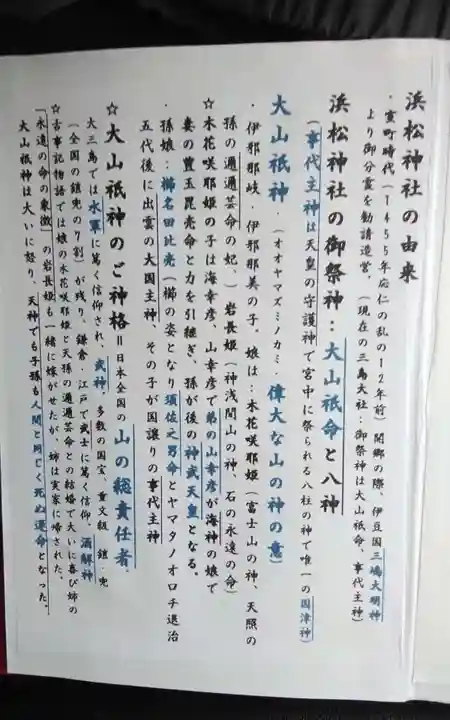 浜松神社の由来
・室町時代（1455年応仁の乱の12年前）開郷の際、伊豆国三嶋大明神
より御分霊を勧請造営。（現在の三島大社：御祭神は大山祇命、事代主神）
浜松神社の御祭神：大山祇命と八神
（事代主神は天皇の守護神で宮中に祭られる八柱の神で唯一の国津神）
大山祇神・（オオヤマズミノカミ・偉大な山の神の意）
・伊邪那岐・伊邪那美の子。娘は：木花咲耶姫（富士山の神、天照の
孫の邇邇芸命の妃、）岩長姫（神浅間山の神、石の永遠の命）
☆木花咲耶姫の子は海幸彦、山幸彦で弟の山幸彦が海神の娘で
妻の豊玉毘売命と力を引継ぎ、孫が後の神武天皇となる。
・孫娘：櫛名田比売（櫛の姿となり須佐之男命とヤマタノオロチ退治
五代後に出雲の大国主神、その子が国譲りの事代主神
☆大山祇神のご神格＝日本全国の山の総責任者、
大三島では水軍に篤く信仰され、武神：多数の国宝、重文級 鎧・兜
（全国の鎧兜の7割）が残り、鎌倉・江戸で武士に篤く信仰、酒解神
☆古事記物語では娘の木花咲耶姫と天孫の邇邇芸命との結婚で大いに喜び姉の
「永遠の命の象徴」の岩長姫も一緒に嫁がせたが、姉は実家に帰された。
大山祇神は大いに怒り、天神でも子孫も人間と同じく死ぬ運命となった。